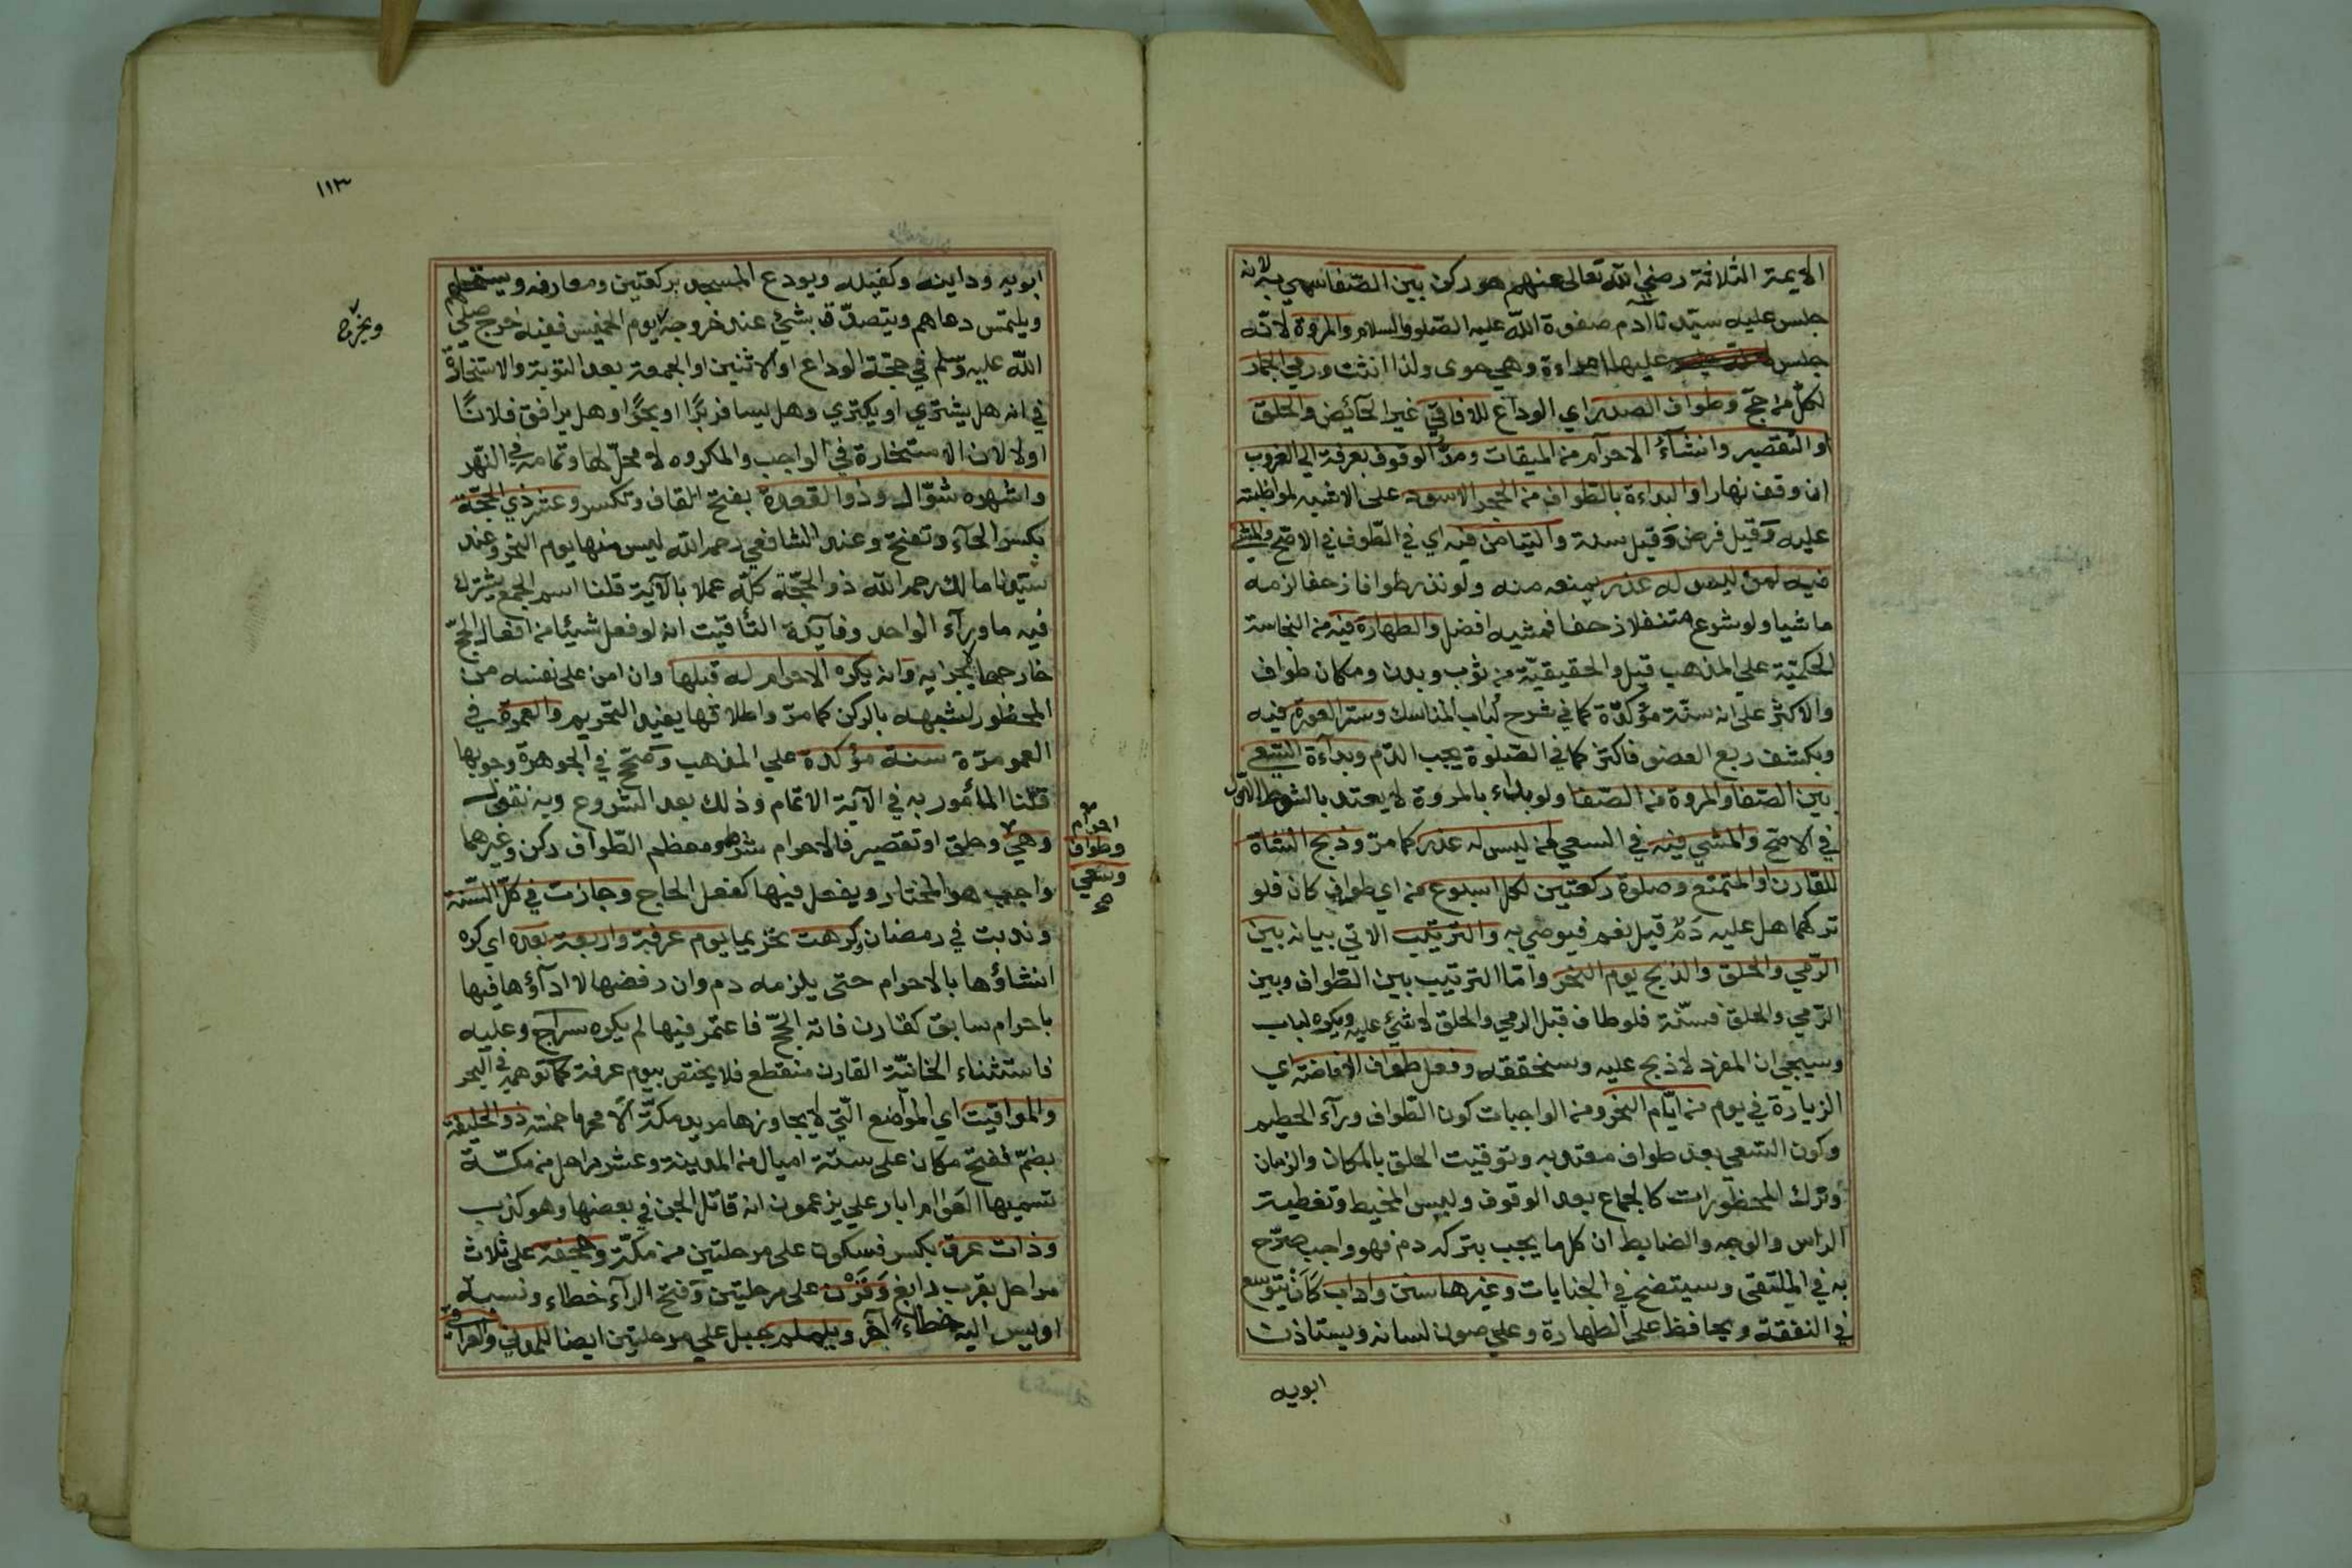 الايمة الثلاثة رضي الله تعالى عنهم هو ركن بين الصفا سمي به لانه
جلس عليه سيدنا ادم صفوة الله عليه الصلوة والسلام والمروة لانه
جلس عليها امراءة وهي حوى ولذا انثت ورمي الجمار
لكل من حج وطواف الصدر اي الوداع للافاقي غير الحائض والحلق
او التقصير وانشآء الاحرام من الميقات ومد الوقوف بعرفة الى الغروب
ان وقف نهارا والبداءة بالطواف من الحجر الاسود على الاشبه لمواظبته
عليه وقيل فرض وقيل سنة والتيامن فيه اي في الطواف في الاصح والمشي
فيه لمن ليس له عذر يمنعه منه ولو نذر طوافا زحفا لزمه
ماشيا ولو شرع متنفلا زحفا فمشيه افضل والطهارة فيه من النجاسة
الحكمية على المذهب قيل والحقيقية من ثوب وبدن ومكان طواف
والاكثر على انه سنة مؤكدة كما في شرح لباب المناسك وستر العورة فيه
وبكشف ربع العضو فاكثر كما في الصلوة يجب الدم وبداءة السعي
بين الصفا والمروة من الصفا ولو بداء بالمروة لا يعتد بالشوط الاول
في الاصح والمشي فيه في السعي لمن ليس له عذر كما مر وذبح الشاة
للقارن والمتمتع وصلوة ركعتين لكل اسبوع من اي طواف كان فلو
تركها هل عليه دم قيل نعم فيوصي به والترتيب الاتي بيانه بين
الرمي والحلق والذبح يوم النحر واما الترتيب بين الطواف وبين
الرمي والحلق فسنة فلو طاف قبل الرمي والحلق لا شئ عليه ويكره لباب
وسيجئ ان المفرد لا ذبح عليه وسنحققه وفعل طواف الافاضة اي
الزيارة في يوم من ايام النحر ومن الواجبات كون الطواف ورآء الحطيم
وكون السعي بعد طواف معتد به وتوقيت الحلق بالمكان والزمان
وترك المحظورات كالجماع بعد الوقوف ولبس المخيط وتغطية
الراس والوجه والضابط ان كل ما يجب بتركه دم فهو واجب صرح
به في الملتقى وسيتضح في الجنايات وغيرها سنن واداب كان يتوسع
في النفقة ويحافظ على الطهارة وعلى صون لسانه ويستاذن
ابويه
١١٣
ابويه وداينه وكفيله ويودع المسجد بركعتين ومعارفه ويستحلهم
ويلتمس دعاهم ويتصدق بشي عند خروجه يوم الخميس ففيه خرج صلى
ويخرج
الله عليه وسلم في حجة الوداع او الاثنين او الجمعة بعد التوبة والاستخارة
في انه هل يشتري او يكتري وهل يسافر برا او بحرا وهل يرافق فلانا
اولا لان الاستخارة في الواجب والمكروه لا محل لها وتمامه في النهر
واشهره شوال وذو القعدة بفتح القاف وتكسر وعشر ذي الحجة
بكسر الحآء وتفتح وعند الشافعي رحمه الله ليس منها يوم النحر وعند
سيدنا مالك رحمه الله ذو الحجة كله عملا بالآية قلنا اسم الجمع يشترك
فيه ما ورآء الواحد وفآيدة التأقيت انه لو فعل شيئا من افعال الحج
خارجها لا يجزيه وانه يكره الاحرام له قبلها وان امن على نفسه من
المحظور لشبهه بالركن كما مر واطلاقها يفيد التحريم والعمرة في
العمر مرة سنة مؤكدة على المذهب وصحح في الجوهرة وجوبها
قلنا المأمور به في الآية الاتمام وذلك بعد الشروع وبه نقول
وهي وحلق او تقصير فالاحرام شرط ومعظم الطواف ركن وغيرهما
احرام
وطواف
وسعي
صح
واجب هو المختار ويفعل فيها كفعل الحاج وجازت في كل السنة
وندبت في رمضان وكرهت تحريما يوم عرفة واربعة بعده اي كره
انشاؤها بالاحرام حتى يلزمه دم وان رفضها لا ادآؤها فيها
باحرام سابق كقارن فاته الحج فاعتمر فيها لم يكره سراج وعليه
فاستثناء الخانية القارن منقطع فلا يختص بيوم عرفة كما توهمه في البحر
والمواقيت اي المواضع التي لا يجاوزها مريد مكة الا محرما خمسة ذو الحليفة
بضم ففتح مكان على ستة اميال من المدينة وعشر مراحل من مكة
تسميها العوام ابار علي يزعمون انه قاتل الجن في بعضها وهو كذب
وذات عرق بكسر فسكون على مرحلتين من مكة وجحفة على ثلاث
مراحل بقرب رابغ وقرن على مرحلتين وفتح الرآء خطاء ونسبة
اويس اليه خطاء آخر ويلملم جبل على مرحلتين ايضا للمدني والعراقي